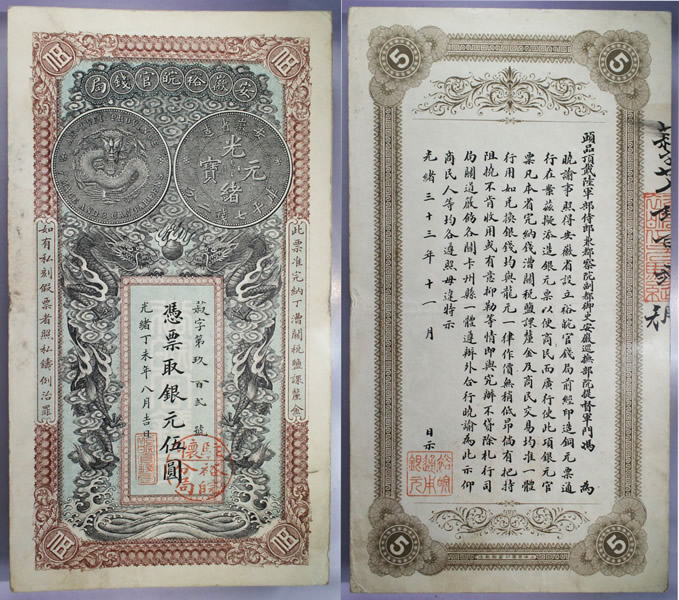 安徽裕皖官錢局
光緒元寶
此票准完納丁漕關稅鹽課釐金
菽字第玖百貳號
憑票取銀元伍圓
光緒丁未年八月吉日
如有私刻假票者照私鑄例治罪
5
5
頭品頂戴陸軍部侍郎兼都察院副都御史安徽巡撫部院提督軍門馮 為
曉諭事照得安徽省設立裕皖官錢局前經印造銅元票通
行在案茲擬添造銀元票以便商民而廣行使此項銀元官
票凡本省完納錢漕關稅鹽課釐金及商民交易均准一體
行用如兌換銀錢均與龍元一律作價無稍低昂倘有把持
阻撓不肯收用或有意抑勒等情即與究辦不貸除札行司
局關道嚴飭各關卡州縣一體遵辦外合行曉諭為此示仰
商民人等均各遵照毋違特示
光緒三十三年十一月 日示
5
5